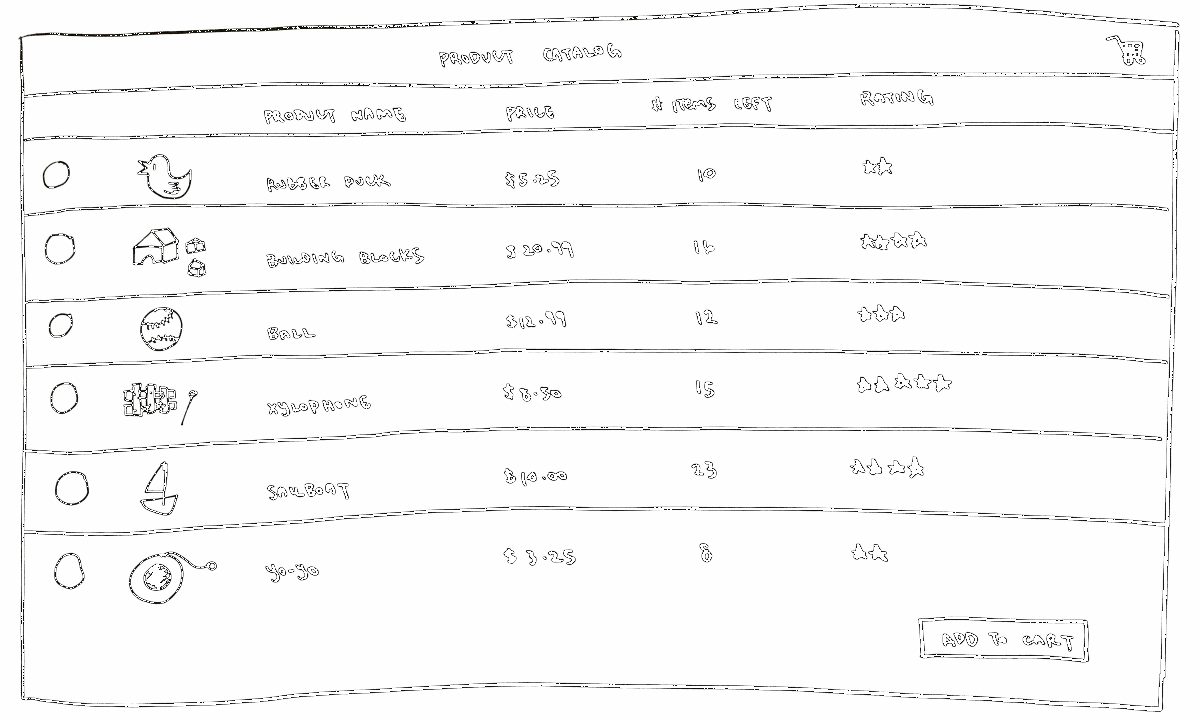 PRODUCT CATALOG
PRODUCT NAME PRICE # ITEMS LEFT RATING
RUBBER DUCK $5.25 10
BUILDING BLOCKS $20.99
BALL $12.99 12
XYLOPHONE 15
SAILBOAT $10.00 23
YO-YO $3.25 8
ADD TO CART